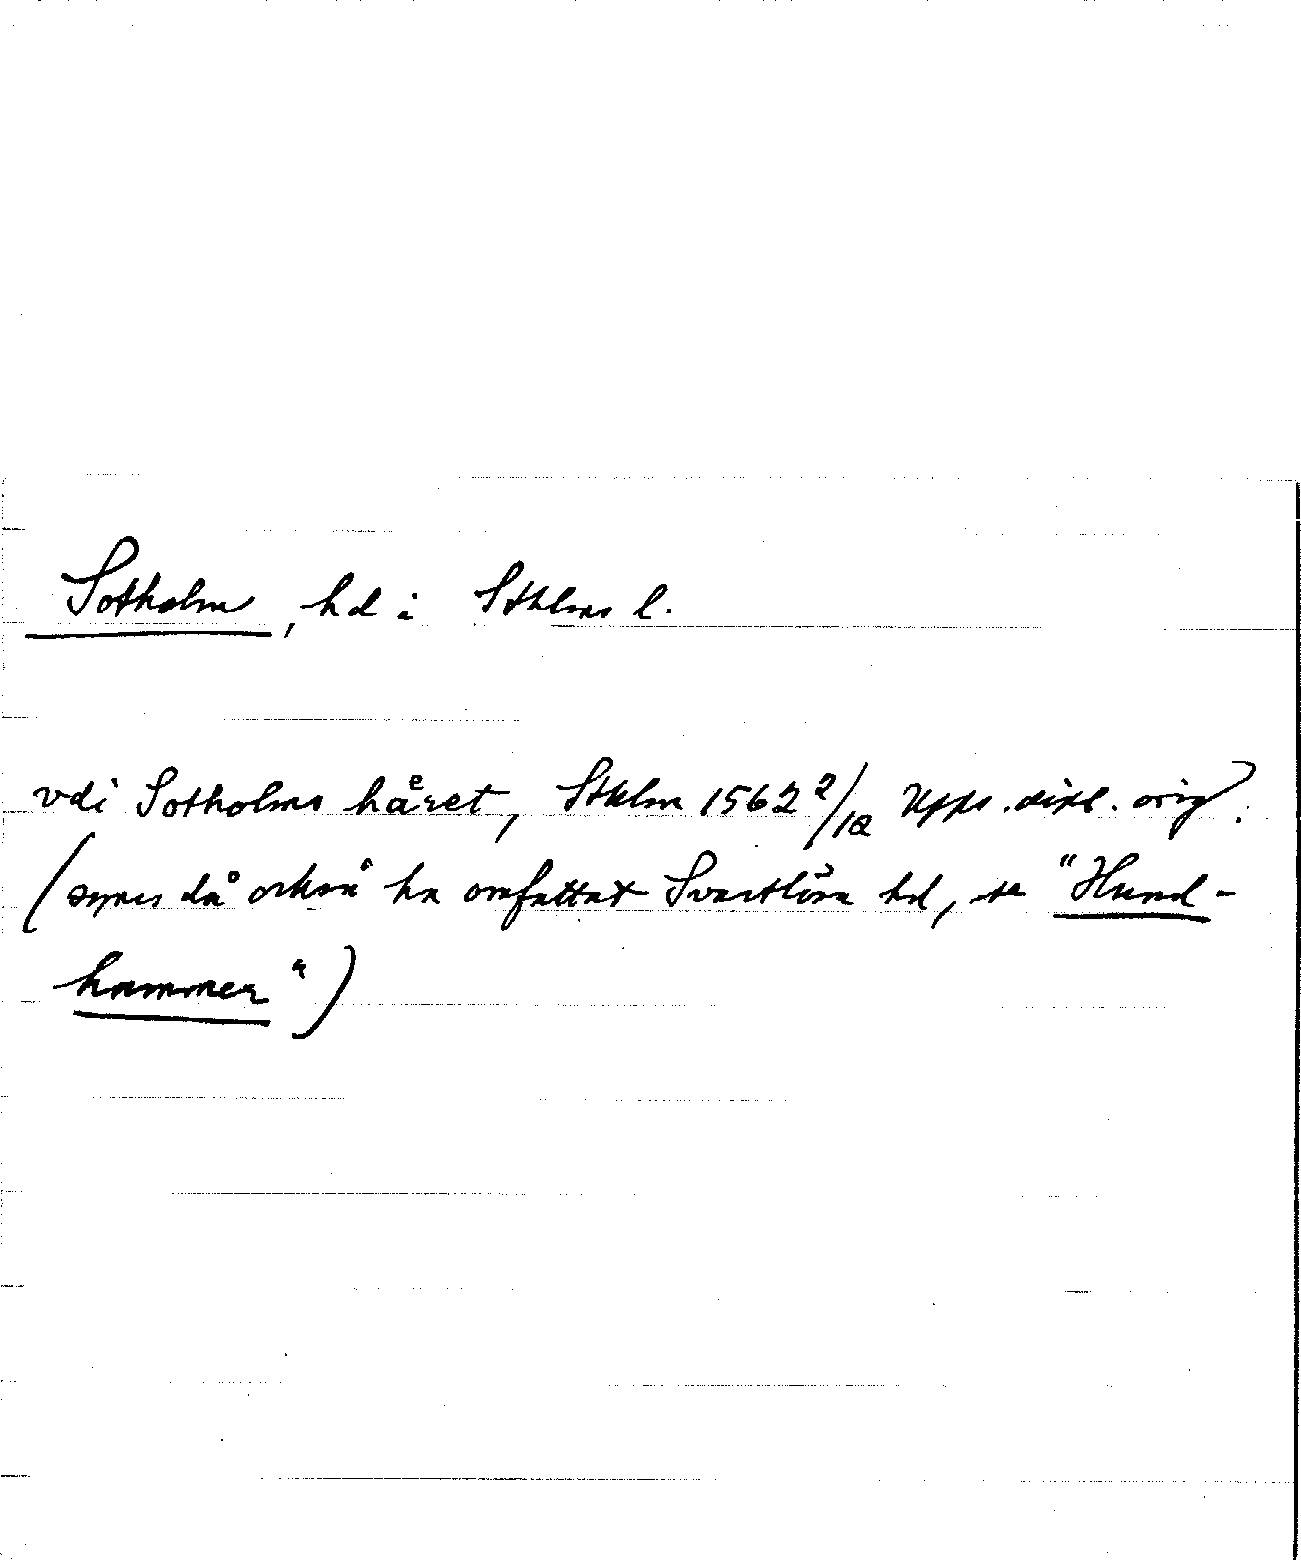 Sotholm, hd i Sthlms l.
vdi Sotholms håret, Sthlm 1562 2/12 Upps. dipl. orig.
(synes då också ha omfattat Svartlösa hd, se "Hund-
hammer")